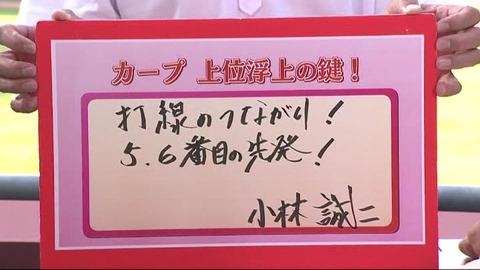 カープ 上位浮上の鍵！
打線のつながり！
5.6番目の先発！
小林 誠二